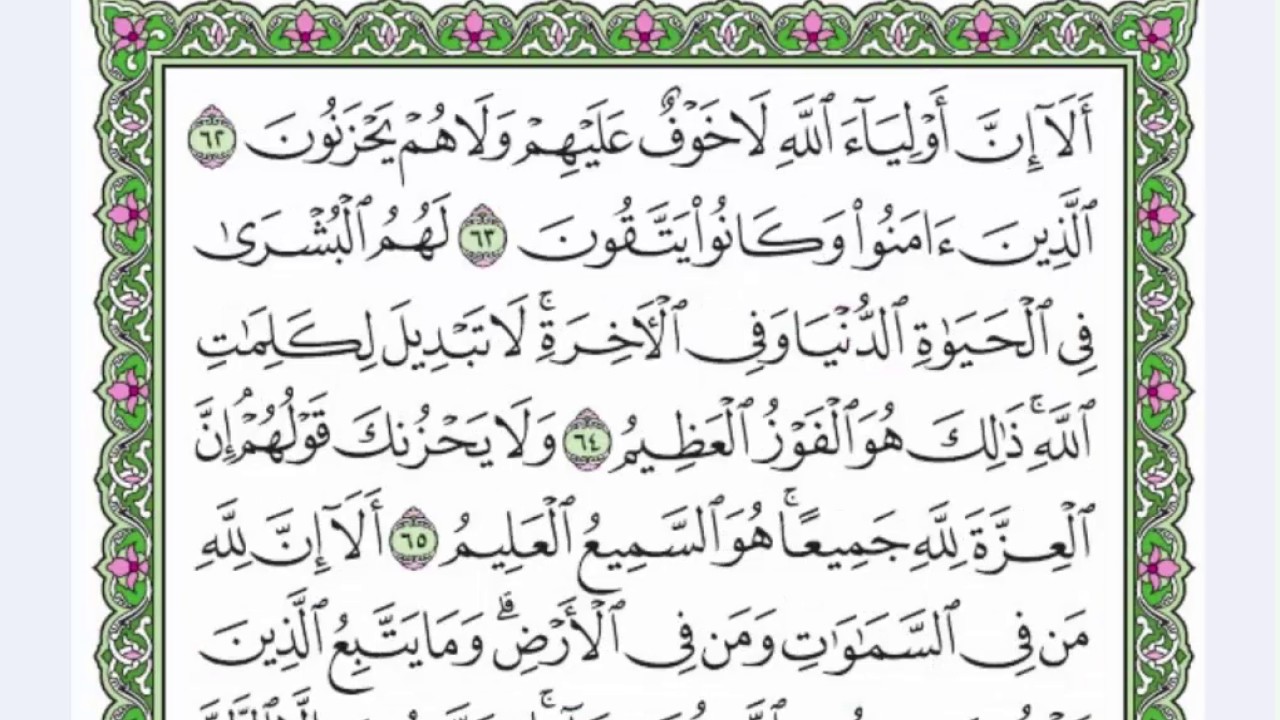 أَلَآ إِنَّ أَوْلِيَآءَ ٱللَّهِ لَا خَوْفٌ عَلَيْهِمْ وَلَا هُمْ يَحْزَنُونَ ٦٢
ٱلَّذِينَ ءَامَنُوا۟ وَكَانُوا۟ يَتَّقُونَ ٦٣ لَهُمُ ٱلْبُشْرَىٰ
فِى ٱلْحَيَوٰةِ ٱلدُّنْيَا وَفِى ٱلْـَٔاخِرَةِ ۚ لَا تَبْدِيلَ لِكَلِمَـٰتِ
ٱللَّهِ ۚ ذَٰلِكَ هُوَ ٱلْفَوْزُ ٱلْعَظِيمُ ٦٤ وَلَا يَحْزُنكَ قَوْلُهُمْ ۘ إِنَّ
ٱلْعِزَّةَ لِلَّهِ جَمِيعًا ۚ هُوَ ٱلسَّمِيعُ ٱلْعَلِيمُ ٦٥ أَلَآ إِنَّ لِلَّهِ
مَن فِى ٱلسَّمَـٰوَٰتِ وَمَن فِى ٱلْأَرْضِ ۗ وَمَا يَتَّبِعُ ٱلَّذِينَ